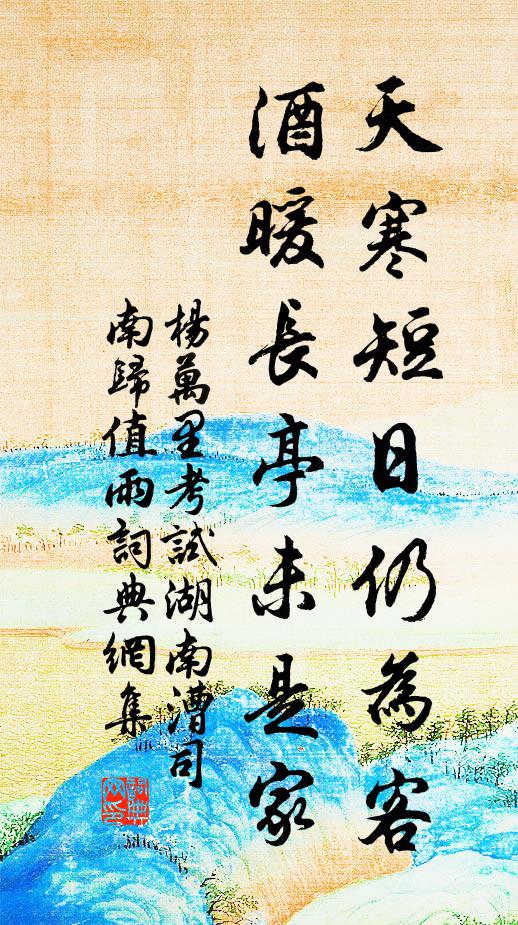 天寒短日仍為客
酒暖長亭未是家
楊萬里考試湖南漕司
南歸值雨詞典網集